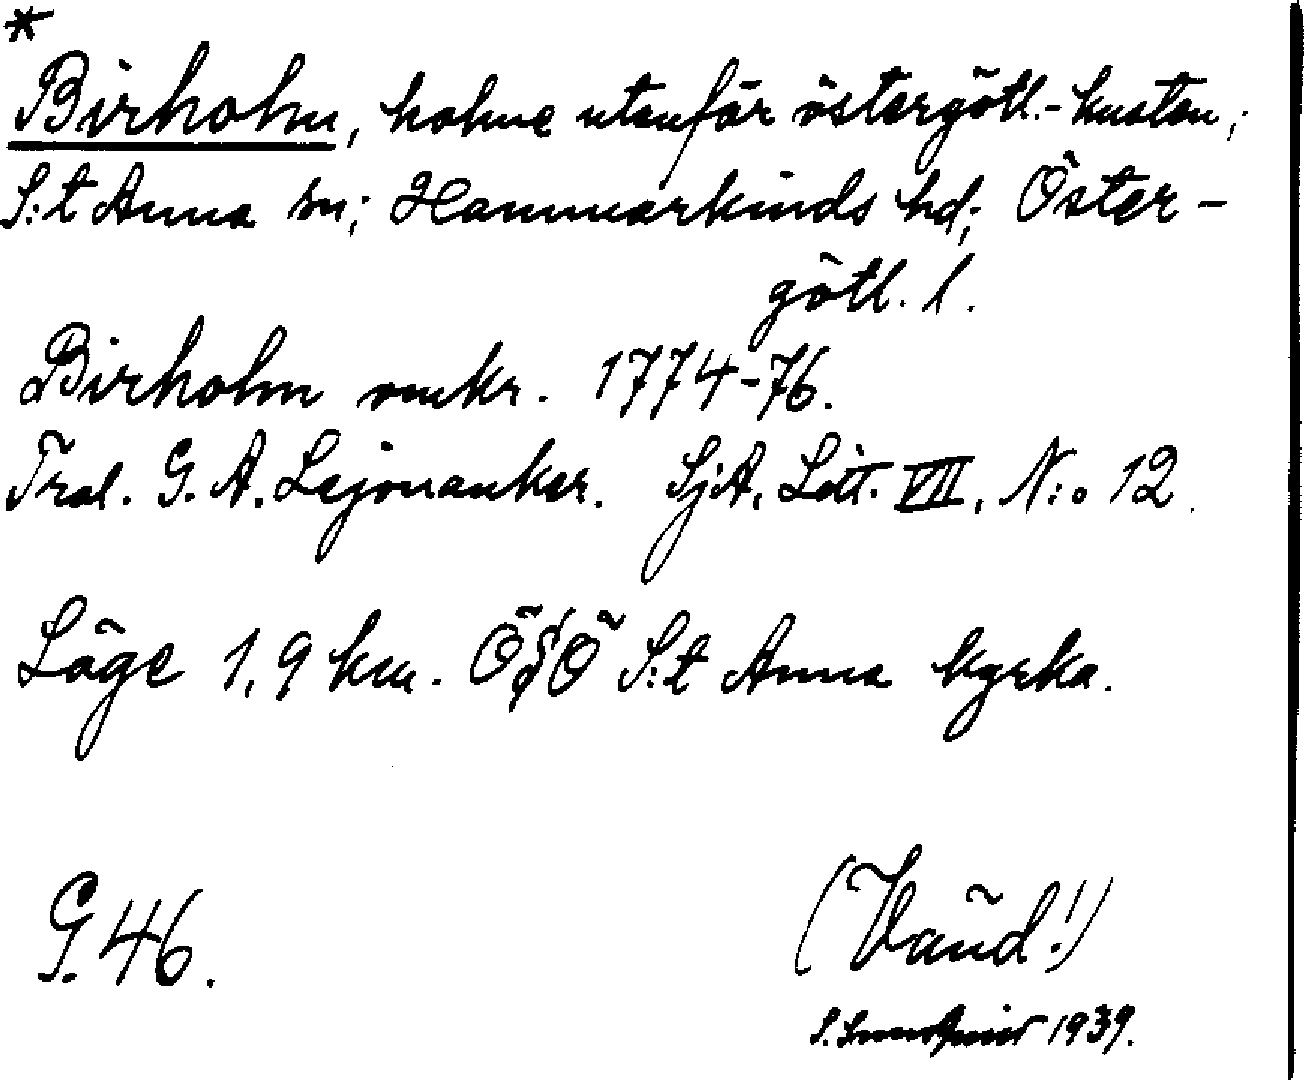 *
Birholm, holme utanför östergötl.-kusten;
S:t Anna sn; Hammarkinds hd; Öster-
götl. l.
Birholm omkr. 1774-76.
Tral. G. A. Lejonanker. SjA, Litt. VII, N:o 12.
Läge 1,9 km. ÖSÖ S:t Anna kyrka.
G. 46.
(Vänd!)
S. 1939.